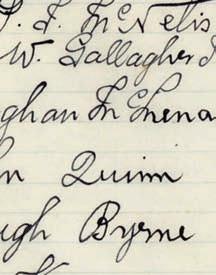 J. F. McNelis
W. Gallagher J
ghan McThena
n Quinn
igh Byrne